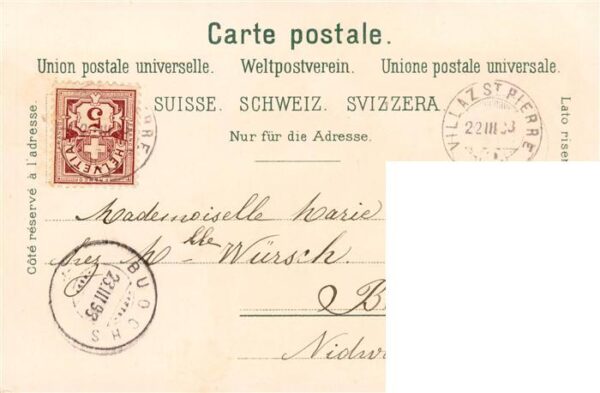 Carte postale.
Union postale universelle. Weltpostverein. Unione postale universale.
SUISSE. SCHWEIZ. SVIZZERA.
Nur für die Adresse.
Côté réservé à l'adresse.
Lato riser
5
HELVETIA
VILLAZ ST PIERRE
22 III 93
IERRE
Mademoiselle Marie
chez Mlle Würsch.
B
Nidw
BUOCHS
23.III.93